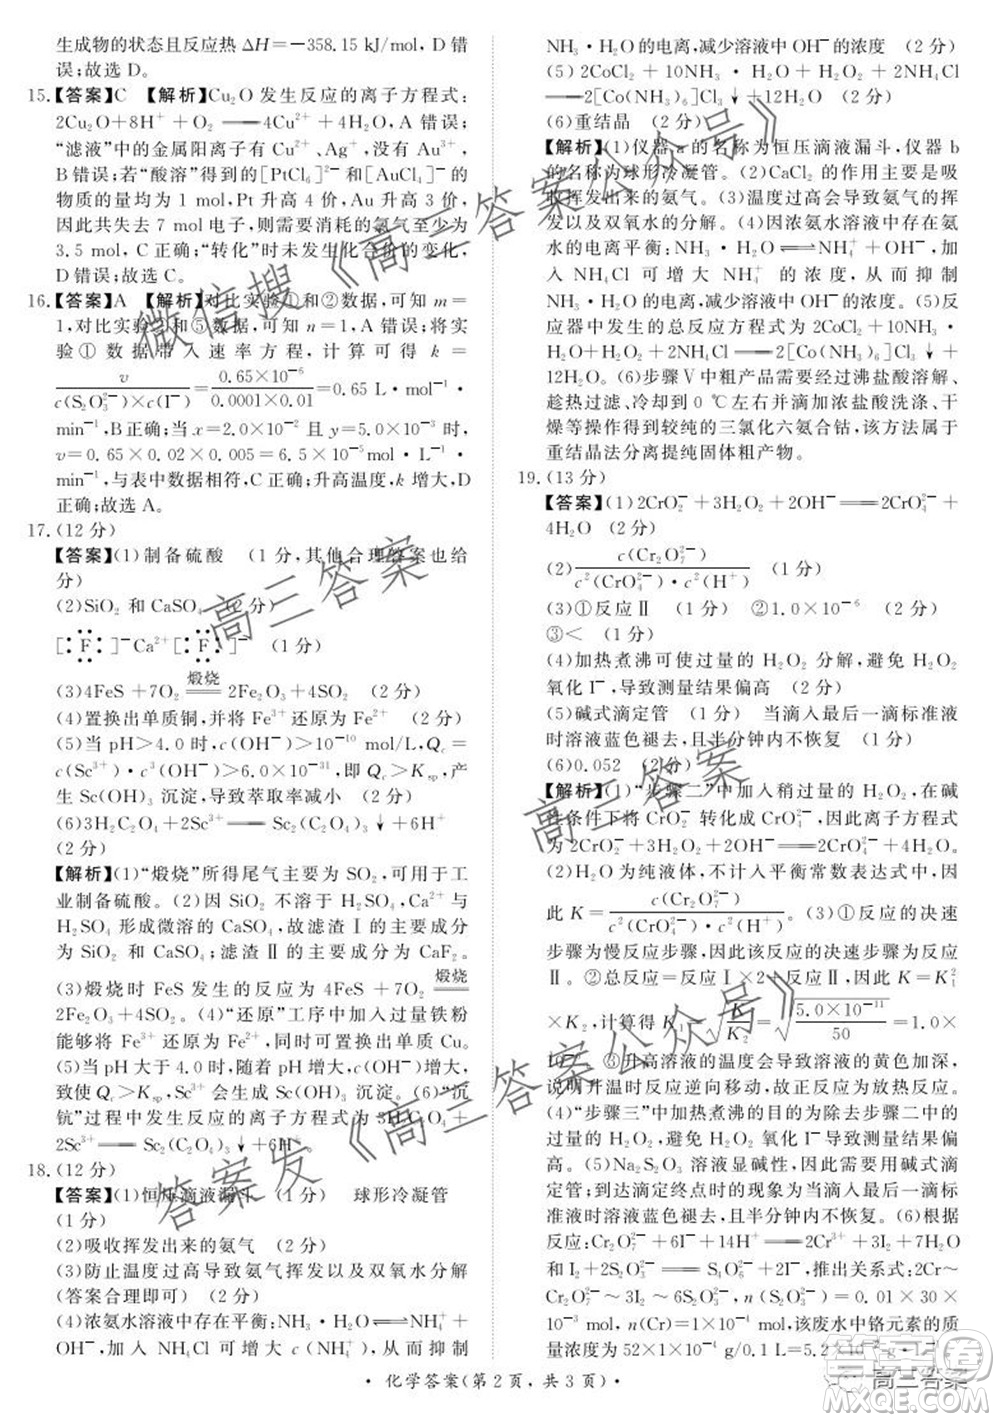 生成物的状态且反应热 ΔH=－358.15 kJ/mol，D 错
误；故选 D。
15.【答案】C 【解析】Cu₂O 发生反应的离子方程式：
2Cu₂O+8H⁺+O₂══4Cu²⁺+4H₂O，A 错误；
“滤液”中的金属阳离子含有 Cu²⁺、Ag⁺，没有 Au³⁺，
B 错误；若“酸溶”得到的[PtCl₆]²⁻和[AuCl₄]⁻的
物质的量均为 1 mol，Pt 升高 4 价，Au 升高 3 价，
因此共失去 7 mol 电子，则需要消耗的氯气至少为
3.5 mol，C 正确；“转化”时未发生化合价的变化，
D 错误；故选 C。
16.【答案】A 【解析】对比实验①和②数据，可知 m=
1，对比实验②和⑤数据，可知 n=1，A 错误；将实
验 ① 数据带入速率方程，计算可得 k =
v/[c(S₂O₈²⁻)×c(I⁻)]=(0.65×10⁻⁶)/(0.0001×0.01)=0.65 L·mol⁻¹·
min⁻¹，B 正确；当 x=2.0×10⁻² 且 y=5.0×10⁻³ 时，
v=0.65×0.02×0.005=6.5×10⁻⁵ mol·L⁻¹·
min⁻¹，与表中数据相符，C 正确；升高温度，k 增大，D
正确；故选 A。
17.(12 分)
【答案】(1)制备硫酸 (1 分，其他合理答案也给
分)
(2)SiO₂ 和 CaSO₄ (2 分)
[:F:]⁻Ca²⁺[:F:]⁻ (1 分)
(3)4FeS+7O₂ ══煅烧══ 2Fe₂O₃+4SO₂ (2 分)
(4)置换出单质铜，并将 Fe³⁺ 还原为 Fe²⁺ (2 分)
(5)当 pH>4.0 时，c(OH⁻)>10⁻¹⁰ mol/L，Qc=
c(Sc³⁺)·c³(OH⁻)>6.0×10⁻³¹，即 Qc>Ksp，产
生 Sc(OH)₃ 沉淀，导致萃取率减小 (2 分)
(6)3H₂C₂O₄+2Sc³⁺══Sc₂(C₂O₄)₃↓+6H⁺
(2 分)
【解析】(1)“煅烧”所得尾气主要为 SO₂，可用于工
业制备硫酸。(2)因 SiO₂ 不溶于 H₂SO₄，CaF₂ 与
H₂SO₄ 形成微溶的 CaSO₄，故滤渣Ⅰ的主要成分
为 SiO₂ 和 CaSO₄；滤渣Ⅱ的主要成分为 CaF₂。
(3)煅烧时 FeS 发生的反应为 4FeS+7O₂ ══煅烧══
2Fe₂O₃+4SO₂。(4)“还原”工序中加入过量铁粉
能够将 Fe³⁺ 还原为 Fe²⁺，且置换出单质 Cu。
(5)当 pH 大于 4.0 时，随着 pH 增大，c(OH⁻)增大，
致使 Qc>Ksp 会生成 Sc(OH)₃ 沉淀。(6)“沉
钪”过程中发生反应的离子方程式为 3H₂C₂O₄+
2Sc³⁺══Sc₂(C₂O₄)₃↓+6H⁺。
18.(12 分)
【答案】(1)恒压滴液漏斗 (1 分) 球形冷凝管
(1 分)
(2)吸收挥发出来的氨气 (2 分)
(3)防止温度过高导致氨气挥发以及双氧水分解
(答案合理即可) (2 分)
(4)浓氨水溶液中存在 NH₃·H₂O⇌NH₄⁺+
OH⁻，加入 NH₄Cl 可增大 NH₄⁺ 的浓度，从而抑制
NH₃·H₂O 的电离，减少溶液中 OH⁻ 的浓度 (2 分)
(5)2CoCl₂+10NH₃·H₂O+H₂O₂+2NH₄Cl
══2[Co(NH₃)₆]Cl₃↓+12H₂O (2 分)
(6)重结晶 (2 分)
【解析】(1)仪器 a 的名称为恒压滴液漏斗，仪器 b
的名称为球形冷凝管。(2)CaCl₂ 的作用主要是吸
收挥发出来的氨气。(3)温度过高会导致氨气的挥
发以及双氧水的分解。(4)因浓氨水溶液中存在氨
水的电离平衡：NH₃·H₂O⇌NH₄⁺+OH⁻，加
入 NH₄Cl 可增大 NH₄⁺ 的浓度，从而抑制
NH₃·H₂O 的电离，减少溶液中 OH⁻ 的浓度。(5)反
应器中发生的总反应方程式为 2CoCl₂+10NH₃·
H₂O+H₂O₂+2NH₄Cl══2[Co(NH₃)₆]Cl₃↓+
12H₂O。(6)步骤Ⅴ中粗产品需要经过沸盐酸溶解、
趁热过滤、冷却到 0 ℃左右并滴加浓盐酸洗涤、干
燥等操作得到较纯的三氯化六氨合钴，该方法属于
重结晶法分离提纯固体粗产物。
19.(13 分)
【答案】(1)2CrO₂⁻+3H₂O₂+2OH⁻══2CrO₄²⁻+
4H₂O (2 分)
(2)c(Cr₂O₇²⁻)/[c²(CrO₄²⁻)·c²(H⁺)] (2 分)
(3)①反应Ⅱ (1 分) ②1.0×10⁻⁶ (2 分)
③< (1 分)
(4)加热煮沸可使过量的 H₂O₂ 分解，避免 H₂O₂
氧化 I⁻，导致测量结果偏高 (2 分)
(5)碱式滴定管 (1 分) 当滴入最后一滴标准液
时溶液蓝色褪去，且半分钟内不恢复 (2 分)
(6)0.052 (2 分)
【解析】(1)“步骤二”中加入稍过量的 H₂O₂，在碱
性条件下将 CrO₂⁻ 转化成 CrO₄²⁻，离子方程式
为 2CrO₂⁻+3H₂O₂+2OH⁻══2CrO₄²⁻+4H₂O。
(2)H₂O 为纯液体，不计入平衡常数表达式中，因
此 K=c(Cr₂O₇²⁻)/[c²(CrO₄²⁻)·c²(H⁺)]。(3)①反应的决速
步骤为慢反应步骤，因此该反应的决速步骤为反应
Ⅱ。②总反应=反应Ⅰ×2+反应Ⅱ，因此 K=K₁²
×K₂，计算得 K₁=√(K/K₂)=√(5.0×10⁻¹¹/50)=1.0×
10⁻⁶。③升高溶液的温度会导致溶液的黄色加深，
说明升温时反应逆向移动，故正反应为放热反应。
(4)“步骤三”中加热煮沸的目的为除去步骤二中的
过量 H₂O₂，避免 H₂O₂ 氧化 I⁻ 导致测量结果偏
高。(5)Na₂S₂O₃ 溶液显碱性，因此选用碱式滴
定管；到达滴定终点时的现象为当滴入最后一滴标
准液时溶液蓝色褪去，且半分钟内不恢复。(6)根据
反应：Cr₂O₇²⁻+6I⁻+14H⁺══2Cr³⁺+3I₂+7H₂O
和 I₂+2S₂O₃²⁻══2I⁻+S₄O₆²⁻，推出关系式：Cr₂O₇²⁻
～3I₂～6S₂O₃²⁻，
10⁻³ mol，n(Cr)=1×10⁻⁴ mol，该废水中铬元素的质
量浓度为 52×1×10⁻⁴ g/0.1 L=
· 化学答案(第 2 页，共 3 页) ·
微信搜《高三答案公众号》
高三答案
高三答案
答案发《高三答案公众号》
高三答案